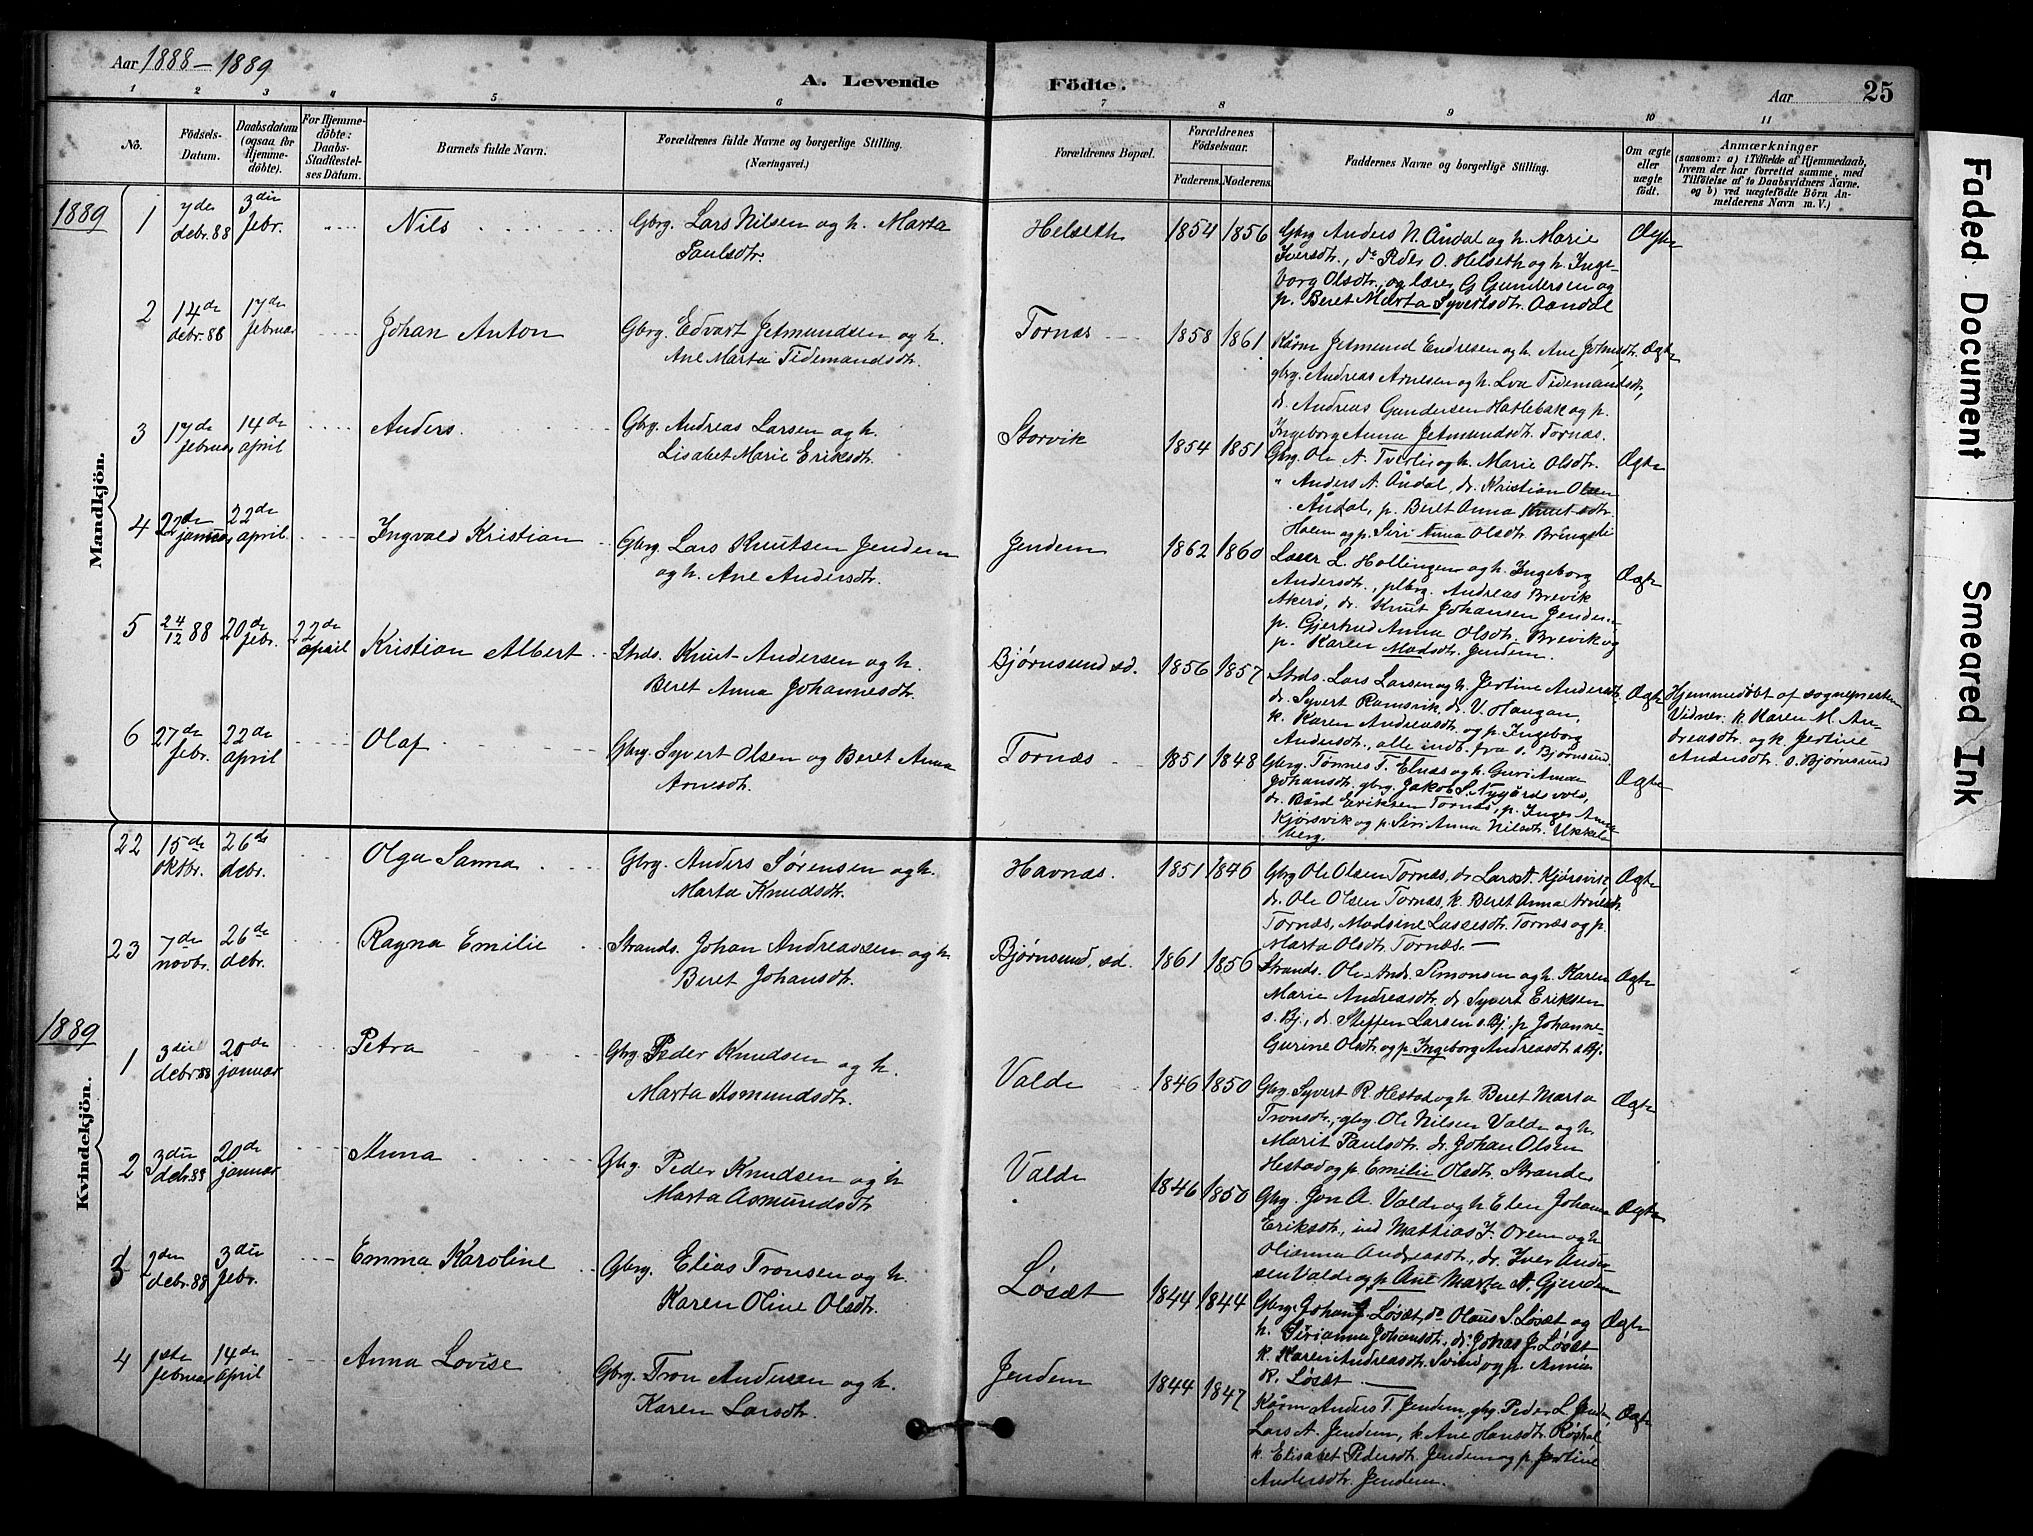 Aar 1888-1889
A. Levende Födte.
Aar
25
1 2 3 4 5 6 7 8 9 10 11
Nö.
Födsels-Datum.
Daabsdatum (ogsaa for Hjemmedöbte).
For Hjemmedöbte: Daabs-Stadfæstelses Datum.
Barnets fulde Navn.
Forældrenes fulde Navne og borgerlige Stilling. (Næringsvei.)
Forældrenes Bopæl.
Forældrenes Födselsaar.
Faderens. Moderens.
Faddernes Navne og borgerlige Stilling.
Om ægte eller uægte födt.
Anmærkninger
(saasom: a) i Tilfælde af Hjemmedaab, hvem der har forrettet samme, med Tilföielse af to Daabsvidners Navne. og b) ved uægtefödte Börn Anmelderens Navn m. V.)
Mandkjön.
1889
1 7de debr. 88 3die febr. Nils
Gbrg. Lars Nilsen og h. Marta
Paulsdtr.
Helseth 1854 1856
Gbrg Anders N. Åndal og h. Marie
Iversdtr., do Peder O. Helseth og h. Inge-
borg Olsdtr., og lærer G Gundersen og
p. Beret Marta Syvertsdtr. Aandal
Ægte
2 14de debr. 88 17de februar Johan Anton
Gbrg. Edvart Jetmundsen og h.
Ane Marta Tidemandsdtr.
Tornæs 1858 1861
Kårm Jetmund Endresen og h. Ane Johnsdtr.
gbrg. Andreas Arnesen og h. Lva Tidemandsdtr,
dr. Andreas Gundersen Hatlebak og p.
Ingeborg Anna Jetmundsdtr. Tornæs.
Ægte
3 17de februar 14de april Anders.
Gbrg. Andreas Larsen og h.
Lisabet Marie Eriksdtr.
Storvik 1854 1851
Gbrg. Ole A. Tverli og h. Marie Olsdtr.
" Anders A. Åndal, dr. Kristian Olsen
Åndal, p. Beret Anna Knutsdtr.
Holm og p. Siri Anna Olsdtr. Bringsli
Ægte
4 22de januar 22de april Ingvald Kristian
Gbrg. Lars Knutsen Jendem
og h. Ane Andersdtr.
Jendem 1862 1860
Lasse L. Hollingen og h. Ingeborg
Andersdtr., plbrg. Andreas Brevik
Akerø, dr. Knut Johansen Jendem
p. Gjertrud Anna Olsdtr. Brevik og
p. Karen Madsdtr. Jendem.
Ægte
5 24/12 88 20de febr. 22de april Kristian Albert
Strds. Knut Andersen og h.
Beret Anna Johannesdtr.
Bjørnsund sd. 1856 1857
Strds. Lars Larsen og h. Jertine Andersdtr.
dr. Syvert Ramsvik, dr. V. Haugan,
k. Karen Andreasdtr. og p. Ingeborg
Andersdtr., alle indb. fra s. Bjørnsund.
Ægte
Hjemmedøbt af sognepresten
Vidner: k. Karen M. An-
dreasdtr. og k. Jertine
Andersdtr. s. Bjørnsund
6 27de febr. 22de april Olaf
Gbrg. Syvert Olsen og Beret Anna
Arnesdtr.
Tornæs 1851 1848
Gbrg. Tønnes T. Elnæs og h. Guri Anna
Johansdtr. gbrg. Jakob S. Nygårdsvold,
dr. Bård Eriksen Tornæs, p. Inger Anna
Kjørsvik og p. Siri Anna Nilsdtr. Ukkel-
berg.
Ægte
Kvindekjön.
22 15de oktbr. 26de debr. Olga Sanna
Gbrg. Anders Sørensen og h.
Marta Knudsdtr.
Havnæs. 1851 1846
Gbrg Ole Olsen Tornæs, dr. Lars A. Kjørsvik
dr. Ole Olsen Tornæs, k. Beret Anna Arnesdtr.
Tornæs, Madsine Lassesdtr. Tornæs og p.
Marta Olsdtr. Tornæs.
Ægte
23 7de novbr. 26de debr. Ragna Emilie
Strands. Johan Andreassen og h
Beret Johansdtr.
Bjørnsund, sd. 1861 1856
Strands. Ole Ands. Simonsen og h. Karen
Marie Andreasdtr. dr Syvert Eriksen
s. Bj., dr. Steffen Larsen s. Bj. p Johanne
Gurine Olsdtr. og p. Ingeborg Andreasdtr s Bj.
Ægte
1889
1 3die debr 88 20de januar Petra
Gbrg. Peder Knudsen og h.
Marta Asmundsdtr.
Valde 1846 1850
Gbrg. Syvert R. Hestad og h Beret Marta
Tronsdtr., gbrg. Ole Nilsen Valde og h.
Marit Paulsdtr. dr. Johan Olsen
Hestad og p. Emilie Olsdtr. Strande.
Ægte
2 3die debr. 88 20de januar Anna
Gbrg. Peder Knudsen og h
Marta Asmundsdtr
Valde 1846 1850
Gbrg. Jon A. Valde og h Elen Johanna
Eriksdtr., ind Mathias J. Orem og h
Olianna Andreasdtr., dr. Iver Ander-
sen Valde og p. Ane Marta A. Gjendem
Ægte
3 2den debr. 88 3die febr. Emma Karoline
Gbrg. Elias Tronsen og h.
Karen Oline Olsdtr.
Løsæt 1844 1844
Gbrg. Johan J. Løsæt, do Olaus S. Løsæt og
h. Sirianna Johansdtr., dr. Johas J. Løsæt
k. Karen Andreasdtr. Svind og p. Anna
R. Løsæt
Ægte
4 1ste februar 14de april Anna Lovise
Gbrg. Tron Andersen og h.
Karen Larsdtr.
Jendem 1844 1847
Kårm Anders T. Jendem, gbrg. Peder L. Jendem,
Lars A. Jendem, k. Ane Hansdtr. Røshol
k. Elisabet Pedersdtr. Jendem og p. Jertine
Andersdtr. Jendem.
Ægte
Faded Document
Smeared Ink